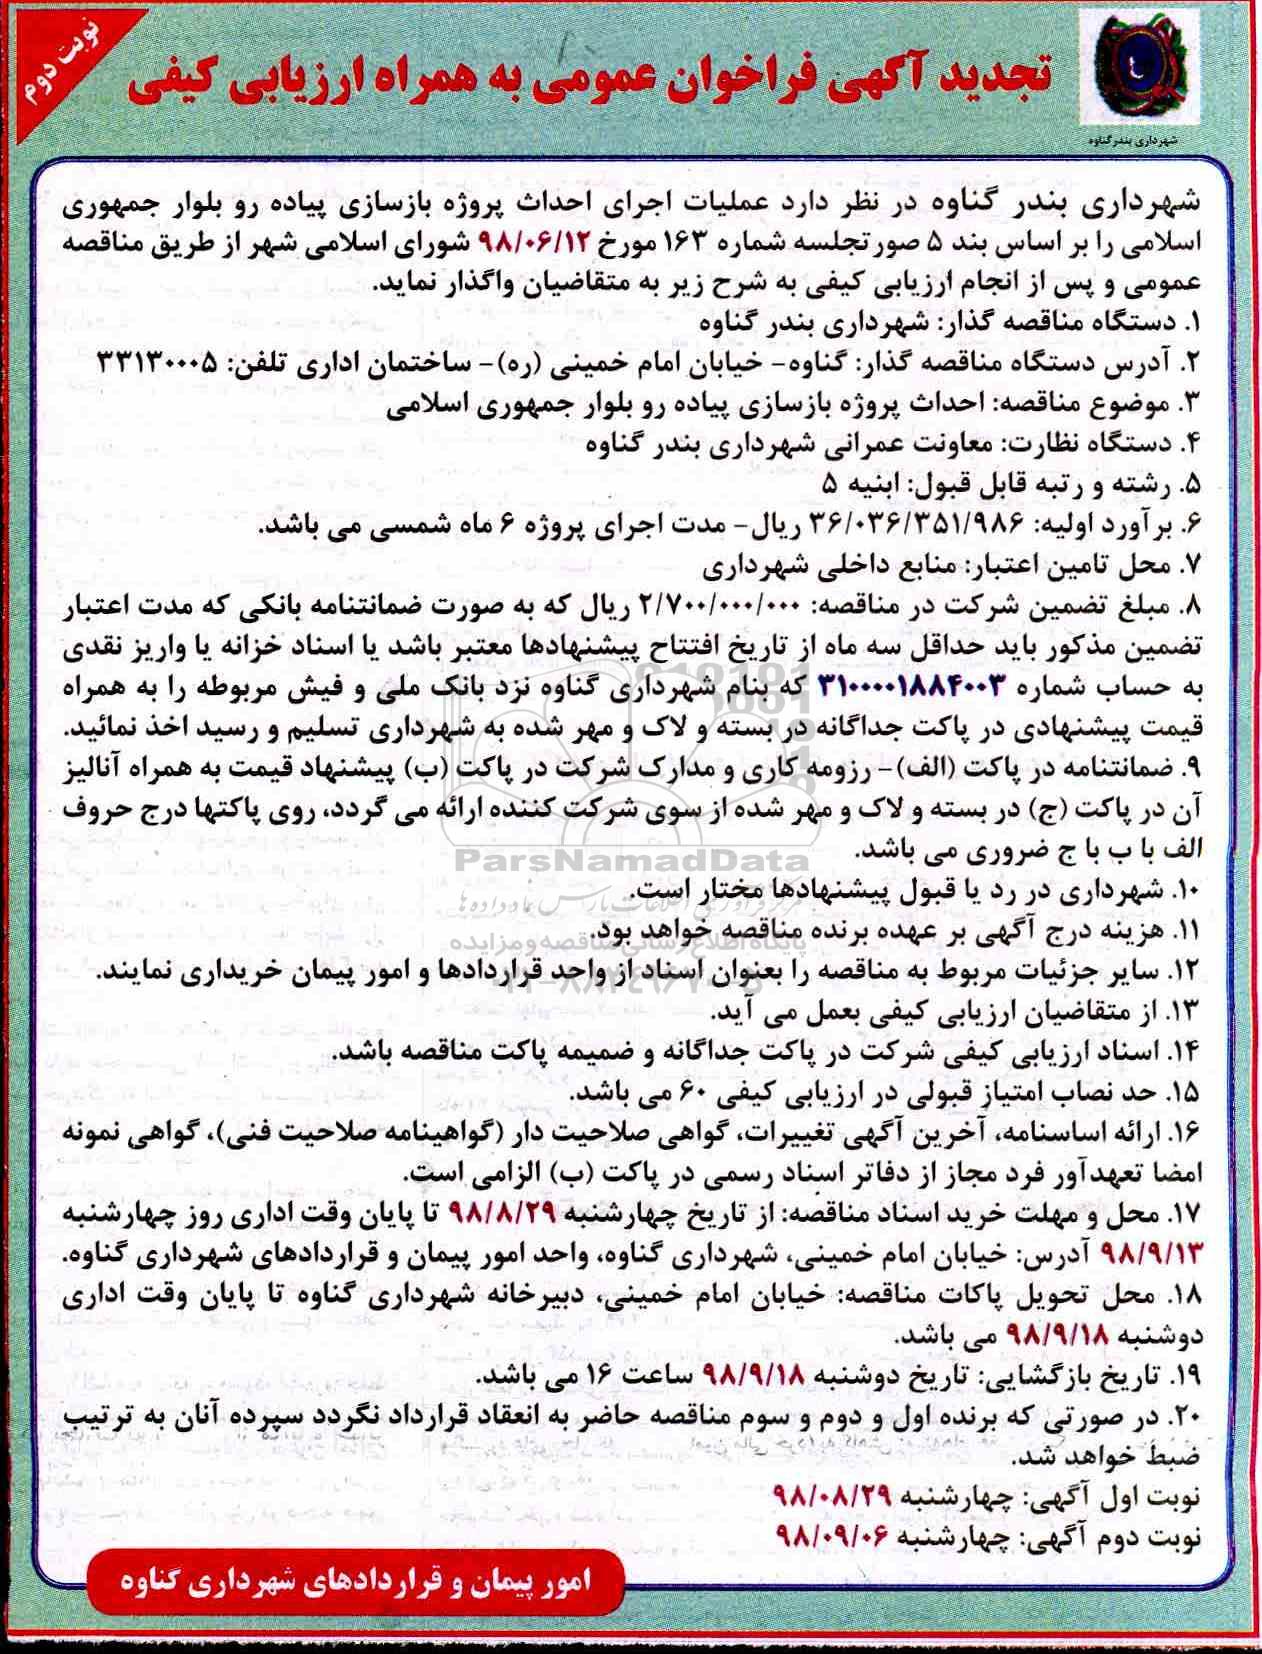 نوبت دوم
تجدید آگهی فراخوان عمومی به همراه ارزیابی کیفی
شهرداری بندر گناوه
شهرداری بندر گناوه در نظر دارد عملیات اجرای احداث پروژه بازسازی پیاده رو بلوار جمهوری
اسلامی را بر اساس بند ۵ صورتجلسه شماره ۱۶۳ مورخ ۹۸/۰۶/۱۲ شورای اسلامی شهر از طریق مناقصه
عمومی و پس از انجام ارزیابی کیفی به شرح زیر به متقاضیان واگذار نماید.
۱. دستگاه مناقصه گذار: شهرداری بندر گناوه
۲. آدرس دستگاه مناقصه گذار: گناوه- خیابان امام خمینی (ره)- ساختمان اداری تلفن: ۳۳۱۳۰۰۰۵
۳. موضوع مناقصه: احداث پروژه بازسازی پیاده رو بلوار جمهوری اسلامی
۴. دستگاه نظارت: معاونت عمرانی شهرداری بندر گناوه
۵. رشته و رتبه قابل قبول: ابنیه ۵
۶. برآورد اولیه: ۳۶/۰۳۶/۳۵۱/۹۸۶ ریال- مدت اجرای پروژه ۶ ماه شمسی می باشد.
۷. محل تامین اعتبار: منابع داخلی شهرداری
۸. مبلغ تضمین شرکت در مناقصه: ۲/۷۰۰/۰۰۰/۰۰۰ ریال که به صورت ضمانتنامه بانکی که مدت اعتبار
تضمین مذکور باید حداقل سه ماه از تاریخ افتتاح پیشنهادها معتبر باشد یا اسناد خزانه یا واریز نقدی
به حساب شماره ۳۱۰۰۰۰۱۸۸۴۰۰۳ که بنام شهرداری گناوه نزد بانک ملی و فیش مربوطه را به همراه
قیمت پیشنهادی در پاکت جداگانه در بسته و لاک و مهر شده به شهرداری تسلیم و رسید اخذ نمائید.
۹. ضمانتنامه در پاکت (الف)- رزومه کاری و مدارک شرکت در پاکت (ب) پیشنهاد قیمت به همراه آنالیز
آن در پاکت (ج) در بسته و لاک و مهر شده از سوی شرکت کننده ارائه می گردد، روی پاکتها درج حروف
الف با ب با ج ضروری می باشد.
ParsNamadData
۱۰. شهرداری در رد یا قبول پیشنهادها مختار است.
مرکز فرآوری اطلاعات پارس نماد داده ها
۱۱. هزینه درج آگهی بر عهده برنده مناقصه خواهد بود.
پایگاه اطلاع رسانی مناقصه و مزایده
۱۲. سایر جزئیات مربوط به مناقصه را بعنوان اسناد از واحد قراردادها و امور پیمان خریداری نمایند.
۱۳. از متقاضیان ارزیابی کیفی بعمل می آید.
۱۴. اسناد ارزیابی کیفی شرکت در پاکت جداگانه و ضمیمه پاکت مناقصه باشد.
۱۵. حد نصاب امتیاز قبولی در ارزیابی کیفی ۶۰ می باشد.
۱۶. ارائه اساسنامه، آخرین آگهی تغییرات، گواهی صلاحیت دار (گواهینامه صلاحیت فنی)، گواهی نمونه
امضا تعهدآور فرد مجاز از دفاتر اسناد رسمی در پاکت (ب) الزامی است.
۱۷. محل و مهلت خرید اسناد مناقصه: از تاریخ چهارشنبه ۹۸/۸/۲۹ تا پایان وقت اداری روز چهارشنبه
۹۸/۹/۱۳ آدرس: خیابان امام خمینی، شهرداری گناوه، واحد امور پیمان و قراردادهای شهرداری گناوه.
۱۸. محل تحویل پاکات مناقصه: خیابان امام خمینی، دبیرخانه شهرداری گناوه تا پایان وقت اداری
دوشنبه ۹۸/۹/۱۸ می باشد.
۱۹. تاریخ بازگشایی: تاریخ دوشنبه ۹۸/۹/۱۸ ساعت ۱۶ می باشد.
۲۰. در صورتی که برنده اول و دوم و سوم مناقصه حاضر به انعقاد قرارداد نگردد سپرده آنان به ترتیب
ضبط خواهد شد.
نوبت اول آگهی: چهارشنبه ۹۸/۰۸/۲۹
نوبت دوم آگهی: چهارشنبه ۹۸/۰۹/۰۶
امور پیمان و قراردادهای شهرداری گناوه